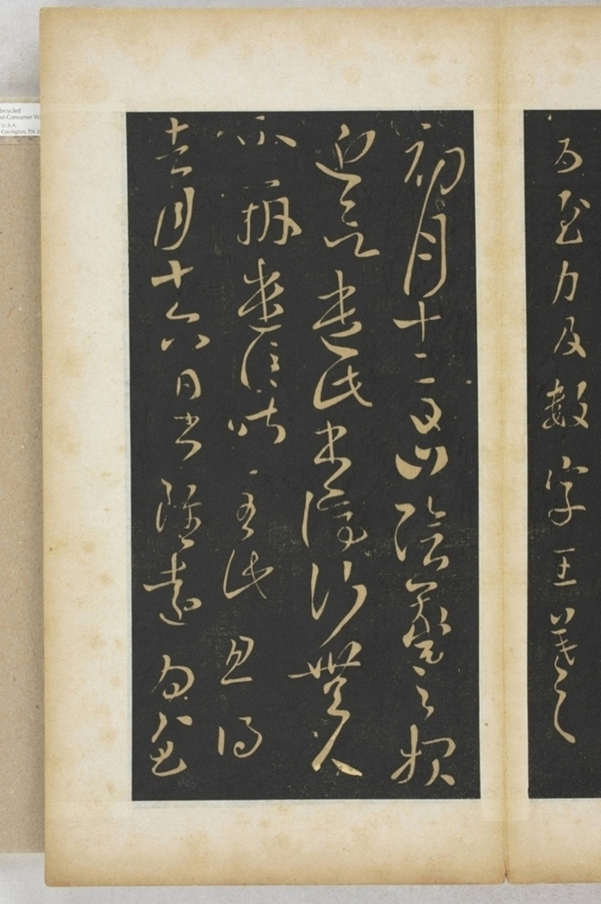 為至力及數字王羲之
初月十二日山陰羲之報
近欲遣此書停行無人
不辦遣信昨至此且得
去月十六日書雖遠為慰
U.S.A.